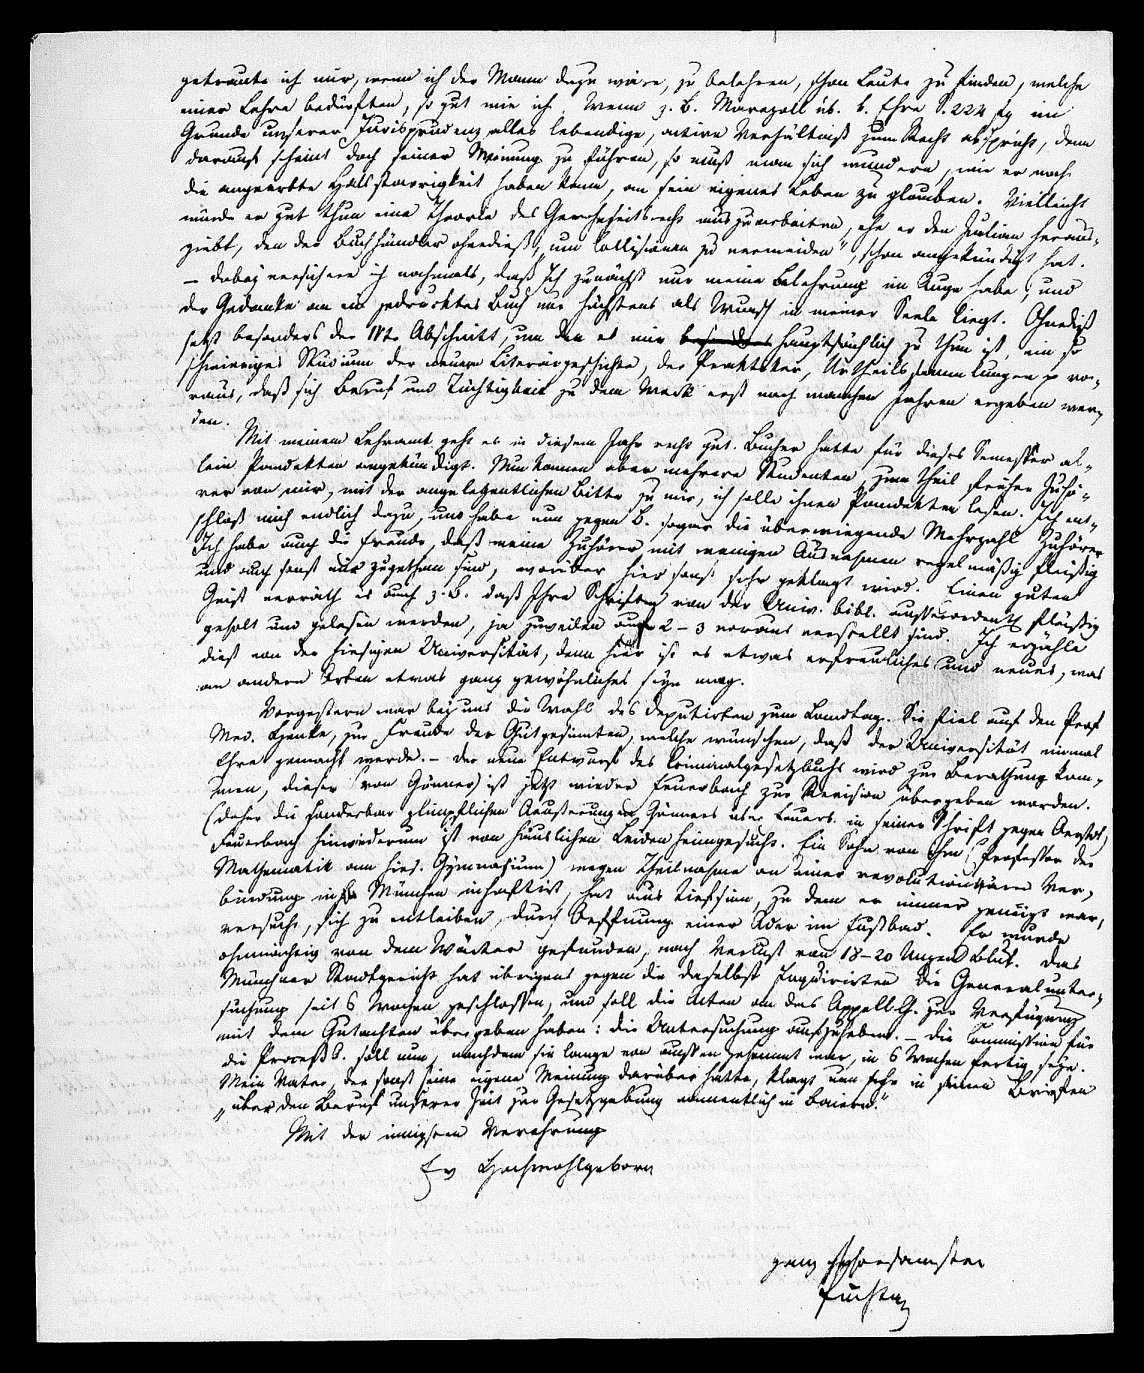 getraute ich nur, wenn ich der Mann dazu wäre, zu belehren, schon Leute zu finden, welche
einer Lehre bedürften, so gut wie ich. Wenn z. B. Marezoll üb. b. Ehre S. 224 fg im
Grunde unserer Jurisprudenz alles lebendige, active Verhältniß zum Recht abspricht, denn
darauf scheint doch seine Meinung zu führen, so muß man sich wundern, wie er noch
die angeerbte Halsstarrigkeit haben kann, an sein eigenes Leben zu glauben. Vielleicht
würde er gut thun eine Theorie des Gewohnheitsrechts auszuarbeiten, ehe er den Julian heraus-
giebt, den der Buchhändler ohnedieß, „um Collisionen zu vermeiden“, schon angekündigt hat.
– dabey versichere ich nochmals, daß ich zunächst nur meine Belehrung im Auge habe, und
der Gedanke an ein gedrucktes Buch nur höchstens als Wunsch in meiner Seele liegt. Ohnedieß
setzt besonders der IVte Abschnitt, um den es mir hauptsächlich zu thun ist, ein so
schwieriges Studium der neuern Literärgeschichte, der Praktiker, Urtheilssammlungen p vor-
raus, daß sich Beruf und Tüchtigkeit zu dem Werk erst nach manchen Jahren ergeben wer-
den.
Mit meinem Lehramt geht es in diesem Jahr recht gut. Bucher hatte für dieses Semester al-
lein Pandekten angekündigt. Nun kamen aber mehrere Studenten, zum Theil früher Zuhö-
rer von mir, mit der angelegentlichen Bitte zu mir, ich solle ihnen Pandekten lesen. Ich ent-
schloß mich endlich dazu, und habe nun gegen B. sogar die überwiegende Mehrzahl Zuhörer
Ich habe auch die Freude, daß meine Zuhörer mit wenigen Ausnahmen regelmäßig fleißig
und auch sonst mir zugethan sind, worüber hier sonst sehr geklagt wird. Einen guten
Geist verräth es auch z. B. daß Ihre Schriften von der Univ. bibl. ausserordentl. fleißig
geholt und gelesen werden, ja zuweilen auf 2 – 3 voraus verstellt sind. Ich erzähle
dieß von der hiesigen Universität, denn hier ist es etwas erfreuliches und neues, was
an andern Orten etwas ganz gewöhnliches seyn mag.
Vorgestern war bey uns die Wahl des Deputirten zum Landtag. Sie fiel auf den Prof
Med. Henke, zur Freude der Gutgesinnten, welche wünschen, daß der Universität einmal
Ehre gemacht werde. – Der neue Entwurf des Criminalgesetzbuchs wird zur Berathung kom-
men, dieser (von Gönner) ist jetzt wieder Feuerbach zur Revision übergeben worden.
(daher die sonderbar glimpflichen Aeusserungen Gönners über Feuerb. in seiner Schrift gegen
Feuerbach hinwiederum ist von häuslichen Leiden heimgesucht. Ein Sohn von ihm (Professor der
Mathematik am hies. Gymnasium) wegen Theilnahme an einer revolutionären Ver-
bindung in München inhaftirt, hat aus Tiefsinn, zu dem er immer geneigt war,
versucht, sich zu entleiben, durch Oeffnung einer Ader im Fußbad. Er wurde
ohnmächtig von dem Wärter gefunden, nach Verlust von 18 – 20 Unzen Blut. Das
Münchner Stadtgericht hat übrigens gegen die daselbst Inquirirten die Generalunter-
suchung seit 6 Wochen geschlossen, und soll die Acten an das Appell. G. zur Verfügung
mit dem Gutachten übergeben haben: die Untersuchung aufzuheben. – Die Commission für
die Proceß O. soll nun, nachdem sie lange von aussen gehemmt war, in 6 Wochen fertig seyn.
Mein Vater, der sonst seine eigene Meinung darüber hatte, klagt nun sehr in seinen Briefen
„über den Beruf unserer Zeit zur Gesetzgebung namentlich in Baiern.“
Mit der innigsten Verehrung
Ew Hochwohlgeborn
ganz gehorsamster
Puchta